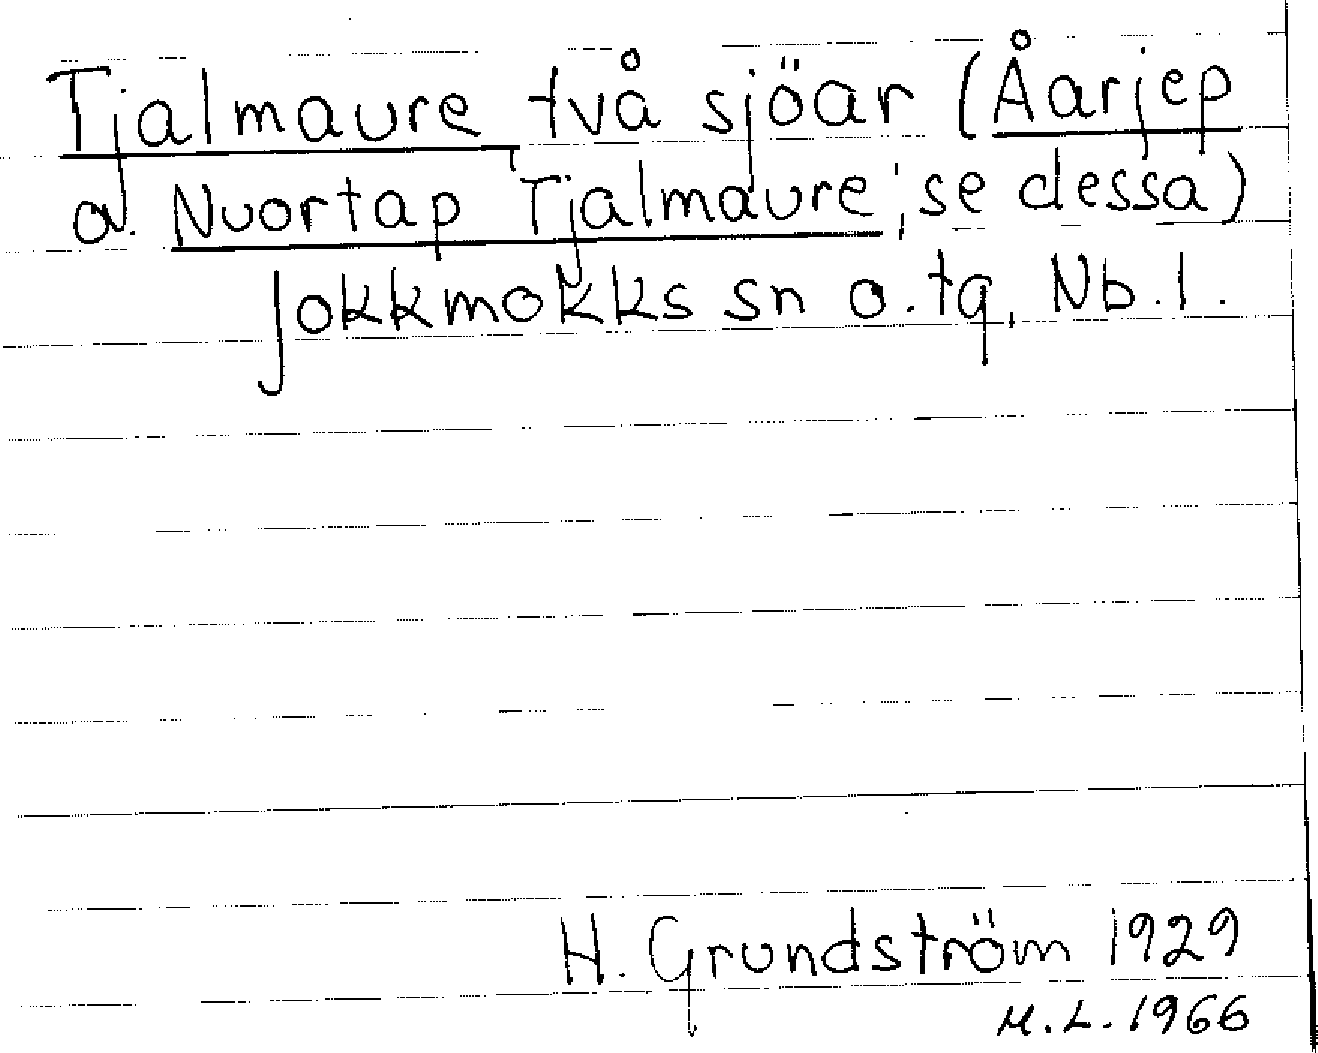 Tjalmaure två sjöar (Åarjep
o. Nuortap Tjalmaure; se dessa)
Jokkmokks sn o. tg, Nb. l.
H. Grundström 1929
M.L. 1966